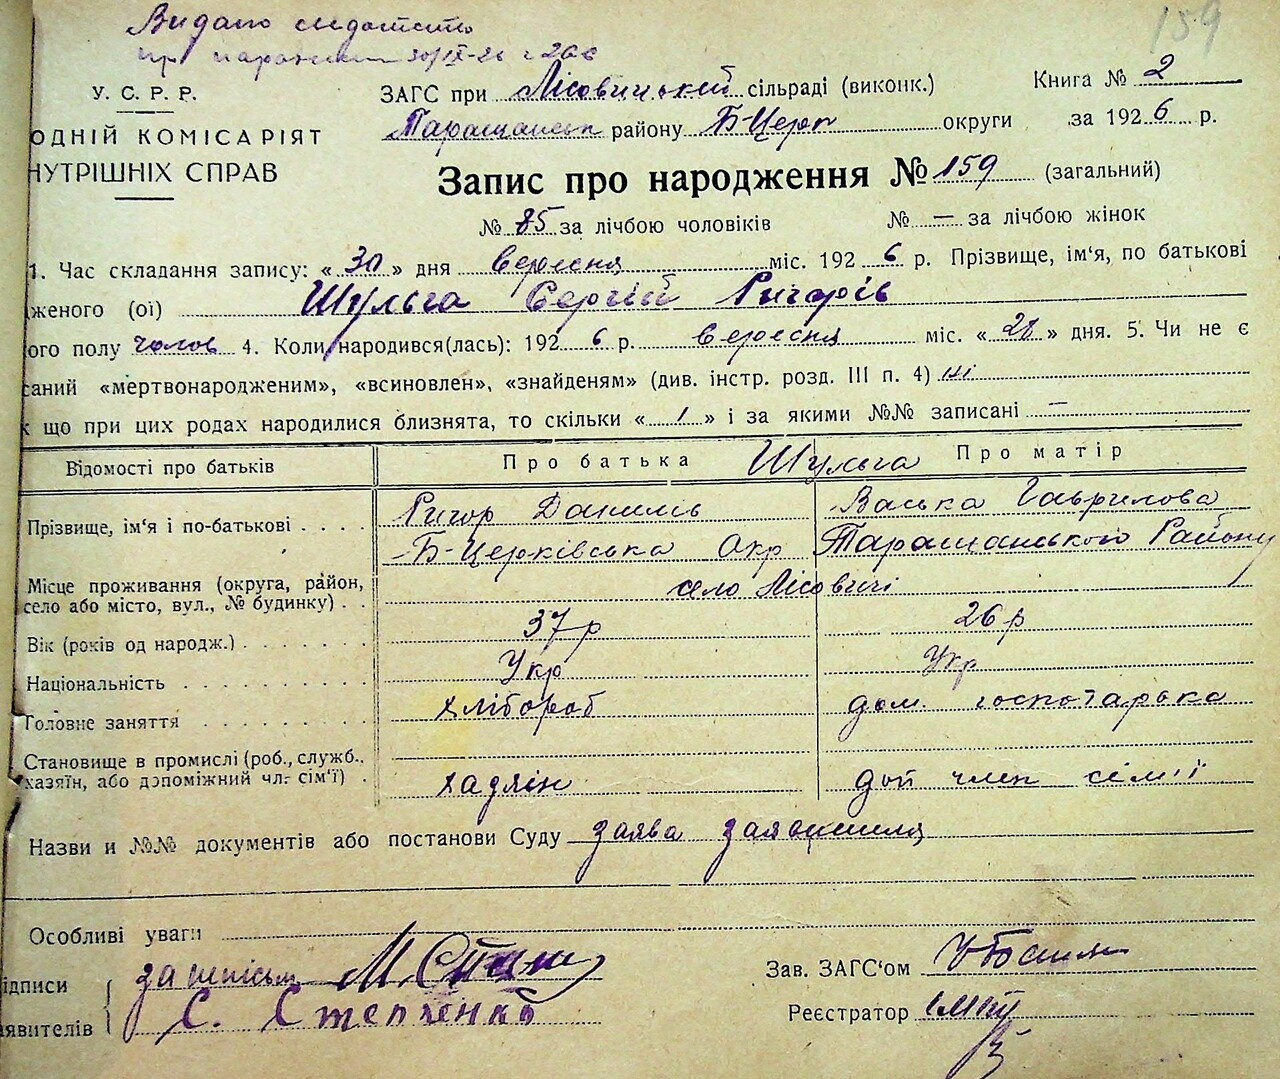 159
Видано
при 30/IX-26 
У. С. Р. Р.
ЗАГС при Лісовицькій сільраді (виконк.) Книга № 2
ОДНІЙ КОМІСАРІЯТ
Таращанськ району Б-Церк округи за 1926 р.
НУТРІШНІХ СПРАВ
Запис про народження № 159 (загальний)
№ 85 за лічбою чоловіків № — за лічбою жінок
1. Час складання запису: « 30 » дня вересня міс. 1926 р. Прізвище, ім'я, по батькові
дженого (ої) Шульга Сергій Ригорів
ого полу чолов 4. Коли народився(лась): 1926 р. вересня міс. « 28 » дня. 5. Чи не є
саний «мертвонародженим», «всиновлен», «знайденям» (див. інстр. розд. III п. 4) ні
к що при цих родах народилися близнята, то скільки « 1 » і за якими №№ записані —
Відомості про батьків Про батька Шульга Про матір
Прізвище, ім'я і по-батькові . . . . Ригор Данилів Васька Гаврилова
Б-Церківська Окр Таращанського Району
Місце проживання (округа, район, село або місто, вул., № будинку) . . село Лісовичі
Вік (років од народж.) . . . . . . . 37 р 26 р
Національність . . . . . . . . . . Укр Укр
Головне заняття . . . . . . . . . хлібороб дом. господарька
Становище в промислі (роб., служб., хазяїн, або допоміжний чл. сім'ї) . хадзяін доп член сім'ї
Назви и №№ документів або постанови Суду заява
Особливі уваги
ідписи М. Зав. ЗАГС'ом
аявителів С. Степченко Реєстратор